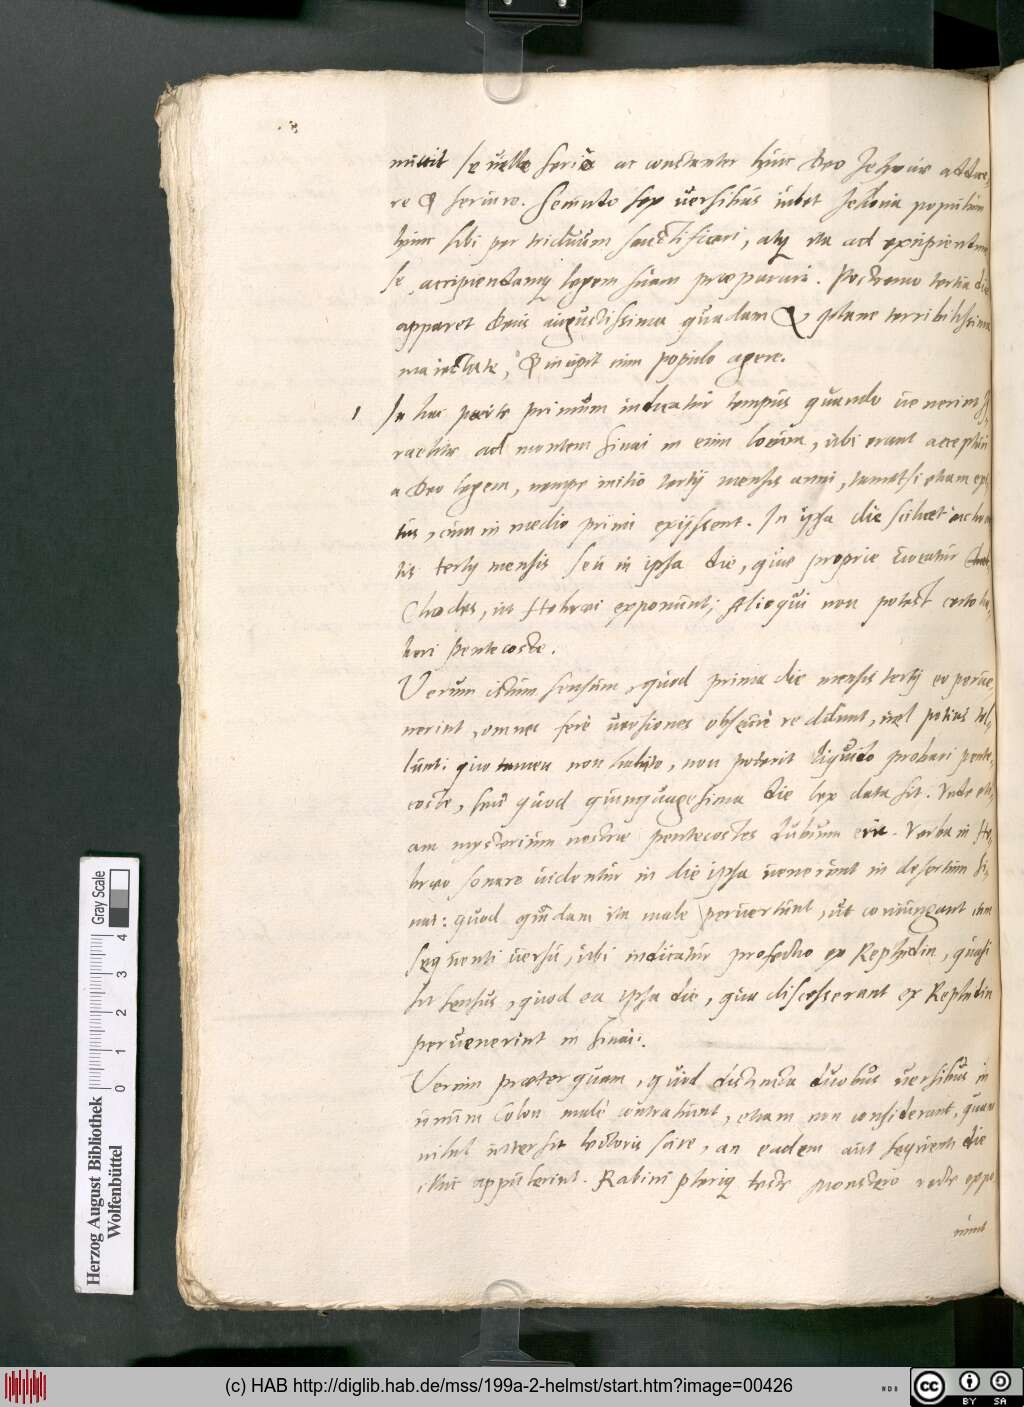 mittit se velle serio ac constanter huic Deo Jehovae attae-
re & servire. Secundo sex versibus iubet Jehova populum
hunc sibi per triduum sanctificari, atq ita ad excipiendum
se accipiendamq legem suam praeparari. Postremo tertia die
apparet Deus augustissima quadam & plane terribilissima
maiestate, & incipit cum populo agere.
1 In hac parte primum indicatur tempus quando venerint Js-
raelitae ad montem Sinai in eum locum, ubi erant accepturi
a Deo legem, nempe initio tertij mensis anni, tametsi etiam
cum in medio primi exijssent. In ipsa die scilicet
tertij mensis seu in ipsa die, quae proprie vocatur
Chodes, ut Hebraei exponunt; Alioqui non potest certo ha-
beri Pentecoste.
Verum istum sensum, quod prima die mensis tertij eo perve-
nerint, omnes fere versiones obscure reddunt, vel potius tol-
lunt: quo tamen non habito, non poterit liquido probari pente-
coste, seu quod quinquagesima die lex data sit. Unde eti-
am mysterium nostrae pentecostes dubium erit. Verba in He-
braeo sonare videntur in die ipsa venerunt in desertum Si-
nai: quod quidam ita male pervertunt, ut coniungant cum
sequenti versu, ubi indicatur profectio ex Rephidin, quasi
sit sensus, quod ea ipsa die, qua discesserant ex Rephidin
pervenerint in Sinai.
Verum praeterquam, quod distincta duobus versibus in
unum Colon male contrahunt, etiam non considerant, quam
nihil intersit lectoris scire, an eadem aut sequenti die
illuc appulerint. Rabini pleriq teste Monstero recte expo
nunt
Gray Scale
0 1 2 3 4
Herzog August Bibliothek
Wolfenbüttel
(c) HAB http://diglib.hab.de/mss/199a-2-helmst/start.htm?image=00426
cc BY SA